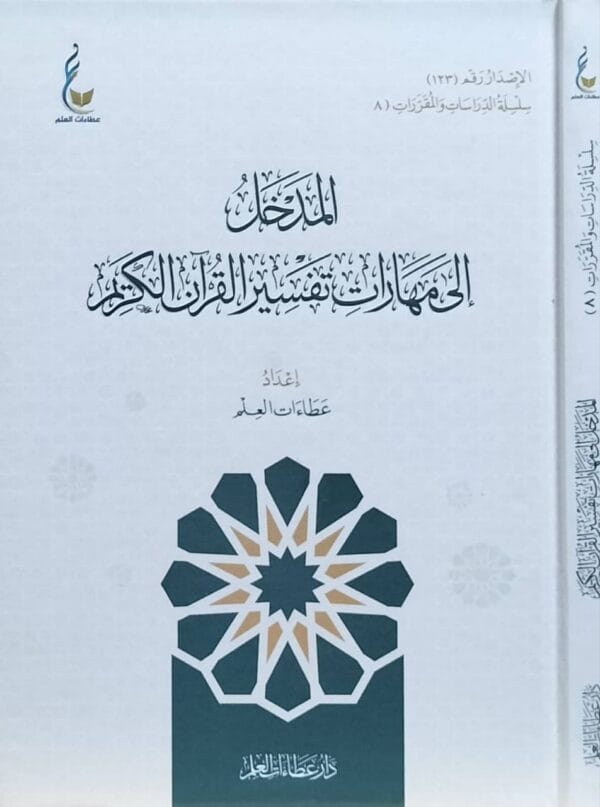 عطاءات العلم
الإصْدَارُ رَقم (١٢٣)
سِلْسِلَةُ الدِّرَاسَاتِ وَالمُقَرَّرَاتِ (٨
المَدْخَلُ
إلى مَهَارَاتِ تَفْسِيْرِ القُرْآنِ الكَرِيمِ
إعْدَادُ
عَطَاءَات العِلْم
دَارُ عَطَاءَاتِ العِلْمِ
عطاءات العلم
سِلْسِلَةُ الدِّرَاسَاتِ وَالمُقَرَّرَاتِ (٨)
المَدْخَلُ إلى مَهَارَاتِ تَفْسِيْرِ القُرْآنِ الكَرِيمِ
دَارُ عَطَاءَاتِ العِلْمِ